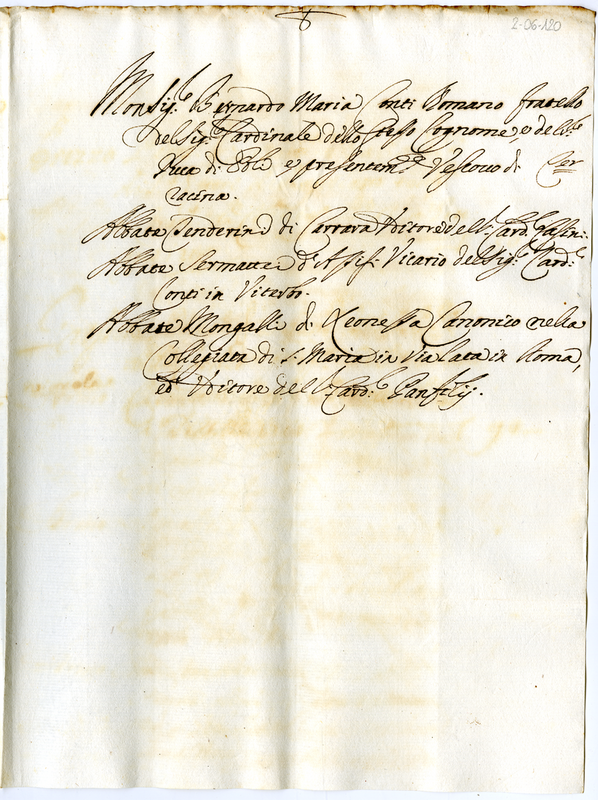 2-06-120
Monsig.r Bernardo Maria Conti Romano fratello
del Sig.r Cardinale dello stesso Cognome, e del S.r
Duca di Poli e presentem.te Vescovo di Ter=
racina.
Abbate Tenderini di Carrara Uditore del S.r Card.l
Abbate Sermattei d'Assisi Vicario del Sig.r Card.l
Conti in Viterbo.
Abbate Mongalli di Leonessa Canonico nella
Collegiata di S. Maria in Via Lata in Roma,
ed Uditore del S.r Card.l Panfilij.